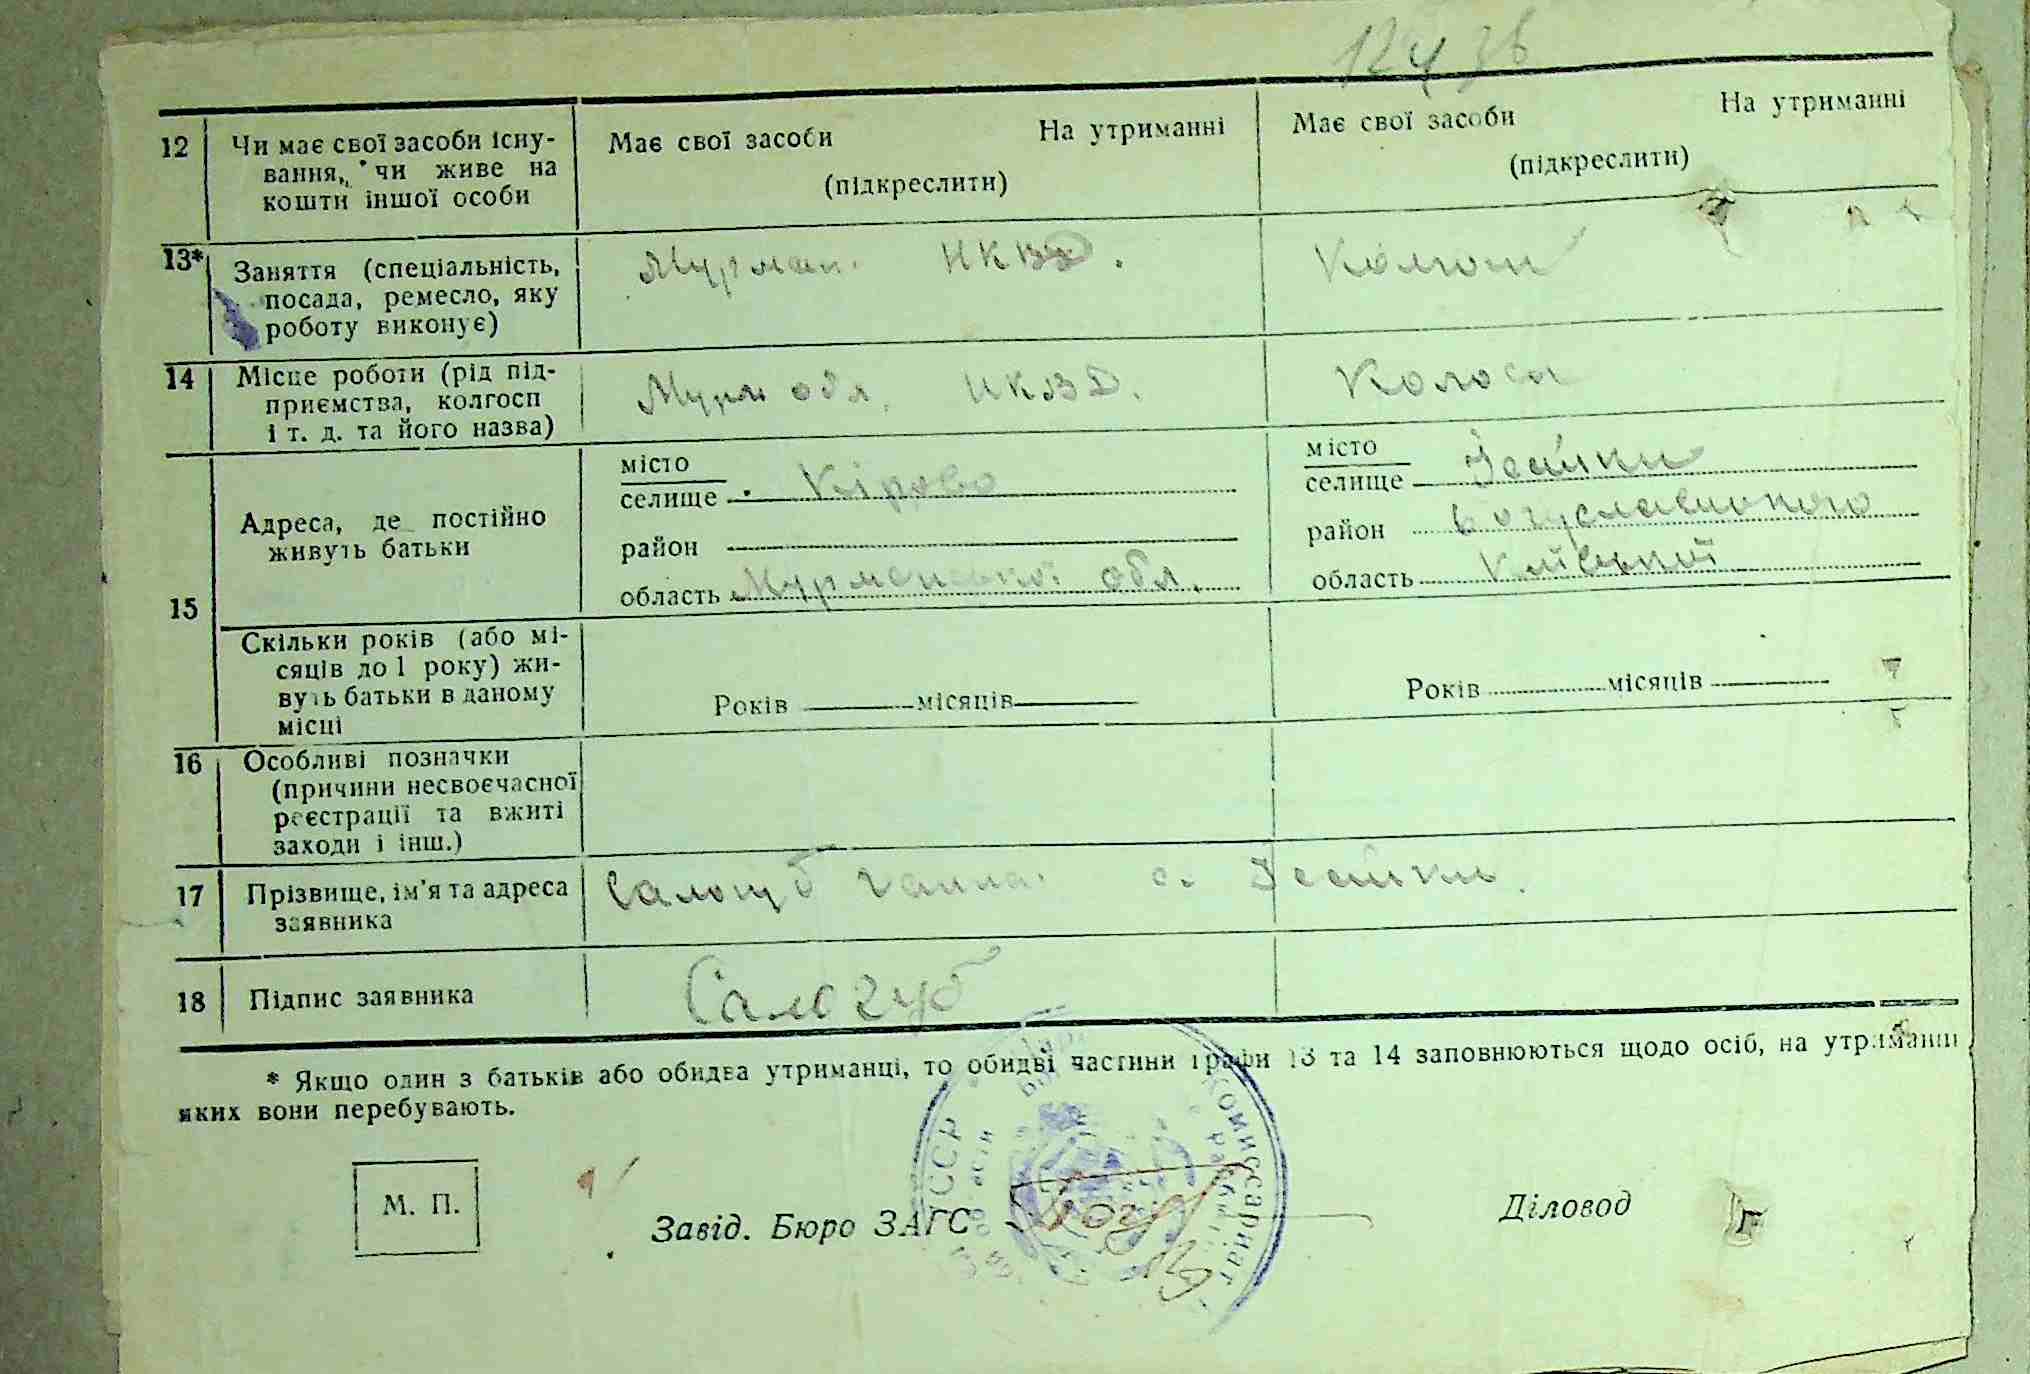 12 Чи має свої засоби існу-
вання, чи живе на
кошти іншої особи
Має свої засоби На утриманні
(підкреслити)
Має свої засоби На утриманні
(підкреслити)
13* Заняття (спеціальність,
посада, ремесло, яку
роботу виконує)
Мурман. НКВД.
14 Місце роботи (рід під-
приємства, колгосп
і т. д. та його назва)
Мурм обл. НКВД.
15
Адреса, де постійно
живуть батьки
місто
селище Кірово
район
область Мурманської обл.
місто
селище Ісайки
район Богуславського
область Київської
Скільки років (або мі-
сяців до 1 року) жи-
вуть батьки в даному
місці
Років місяців
Років місяців
16 Особливі позначки
(причини несвоєчасної
реєстрації та вжиті
заходи і інш.)
17 Прізвище, ім'я та адреса
заявника
Салогуб Ганна. с. Ісайки.
18 Підпис заявника
Салогуб
* Якщо один з батьків або обидва утриманці, то обидві частини графи 13 та 14 заповнюються щодо осіб, на утриманні
яких вони перебувають.
М. П.
Завід. Бюро ЗАГС
Діловод